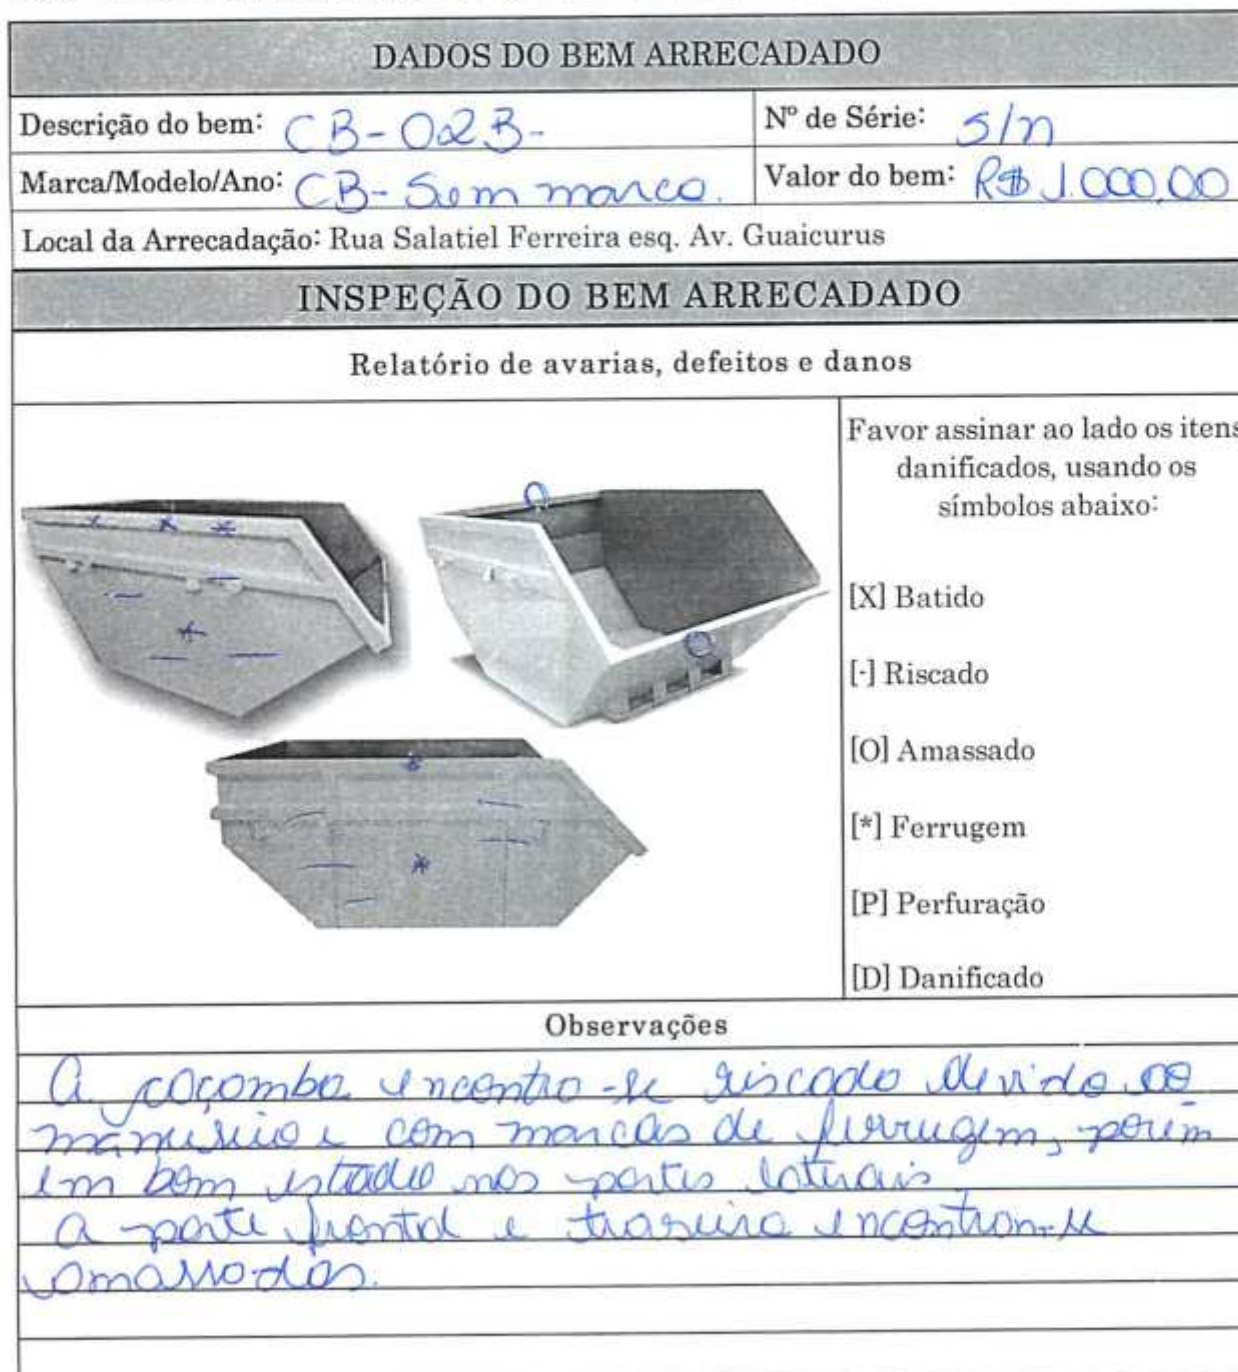 DADOS DO BEM ARRECADADO
Descrição do bem: CB-023-
Nº de Série: s/n
Marca/Modelo/Ano: CB-Sem marca.
Valor do bem: R$ 1.000,00
Local da Arrecadação: Rua Salatiel Ferreira esq. Av. Guaicurus
INSPEÇÃO DO BEM ARRECADADO
Relatório de avarias, defeitos e danos
Favor assinar ao lado os itens
danificados, usando os
símbolos abaixo:
[X] Batido
[-] Riscado
[O] Amassado
[*] Ferrugem
[P] Perfuração
[D] Danificado
Observações
A caçamba encontra-se riscada devido ao
manuseio e com marcas de ferrugem, porém
em bom estado nas partes laterais
a parte frontal e traseira encontram-se
amassadas.